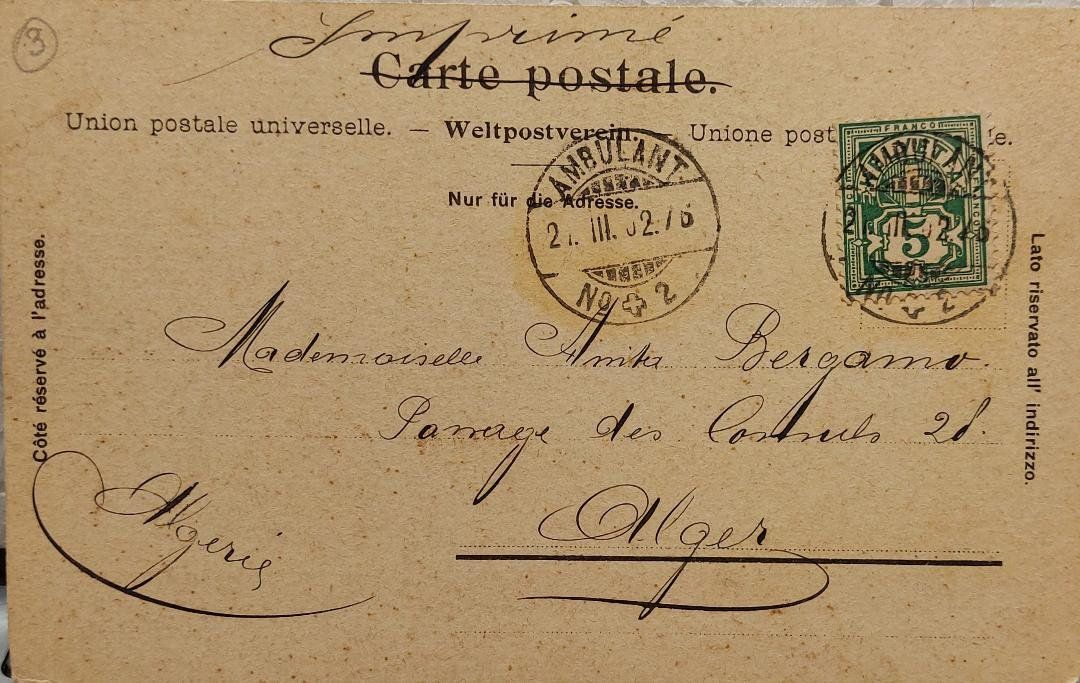 3
Imprimé
Carte postale.
Union postale universelle. — Weltpostverein. — Unione post e.
Nur für die Adresse.
AMBULANT
III. 02. 76
No 2
FRANCO
5
AMBULANT
III. 02. 76
No 2
Côté réservé à l'adresse.
Lato riservato all' indirizzo.
Mademoiselle Anita Bergamo.
Passage des Consuls 28.
Alger
Algérie